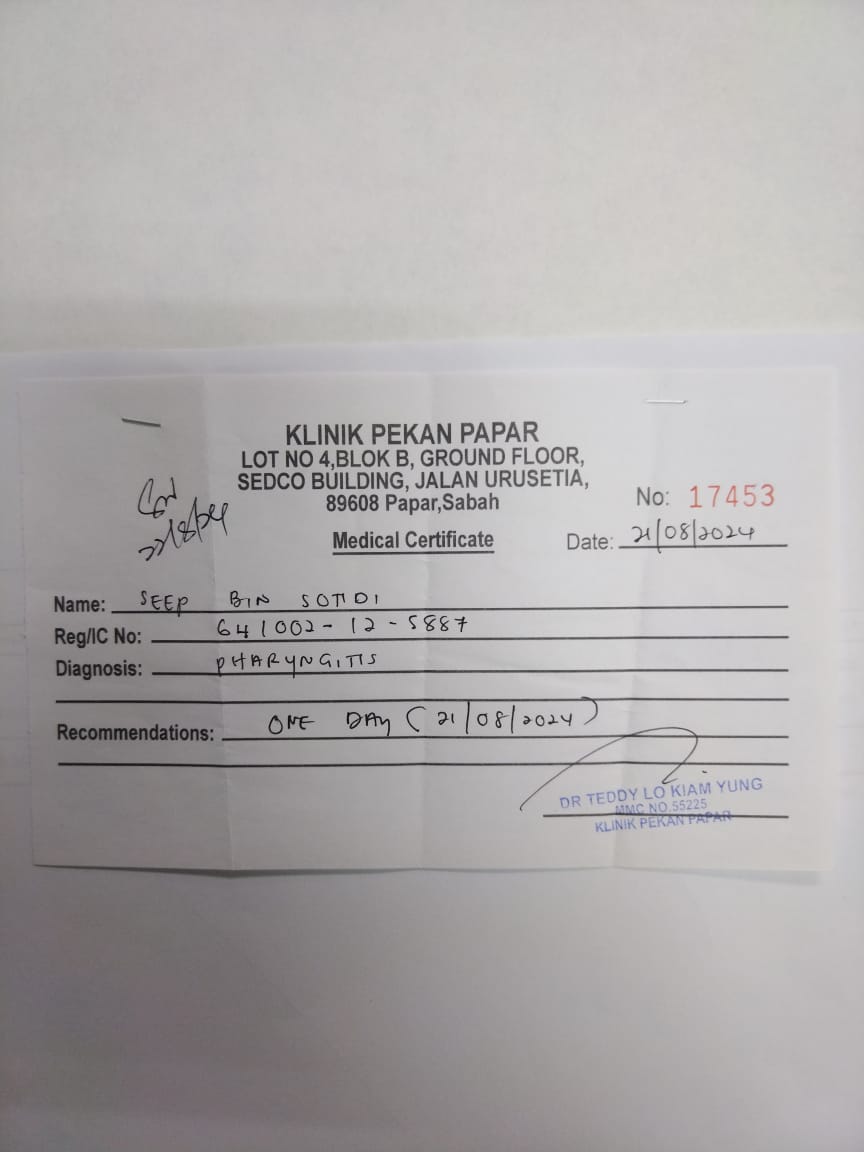 KLINIK PEKAN PAPAR
LOT NO 4,BLOK B, GROUND FLOOR,
SEDCO BUILDING, JALAN URUSETIA,
89608 Papar,Sabah
No: 17453
22/8/24
Medical Certificate
Date: 21/08/2024
Name: SEEP BIN SOTIDI
Reg/IC No: 641002-12-5887
Diagnosis: PHARYNGITIS
Recommendations: ONE DAY (21/08/2024)
DR TEDDY LO KIAM YUNG
MMC NO.55225
KLINIK PEKAN PAPAR